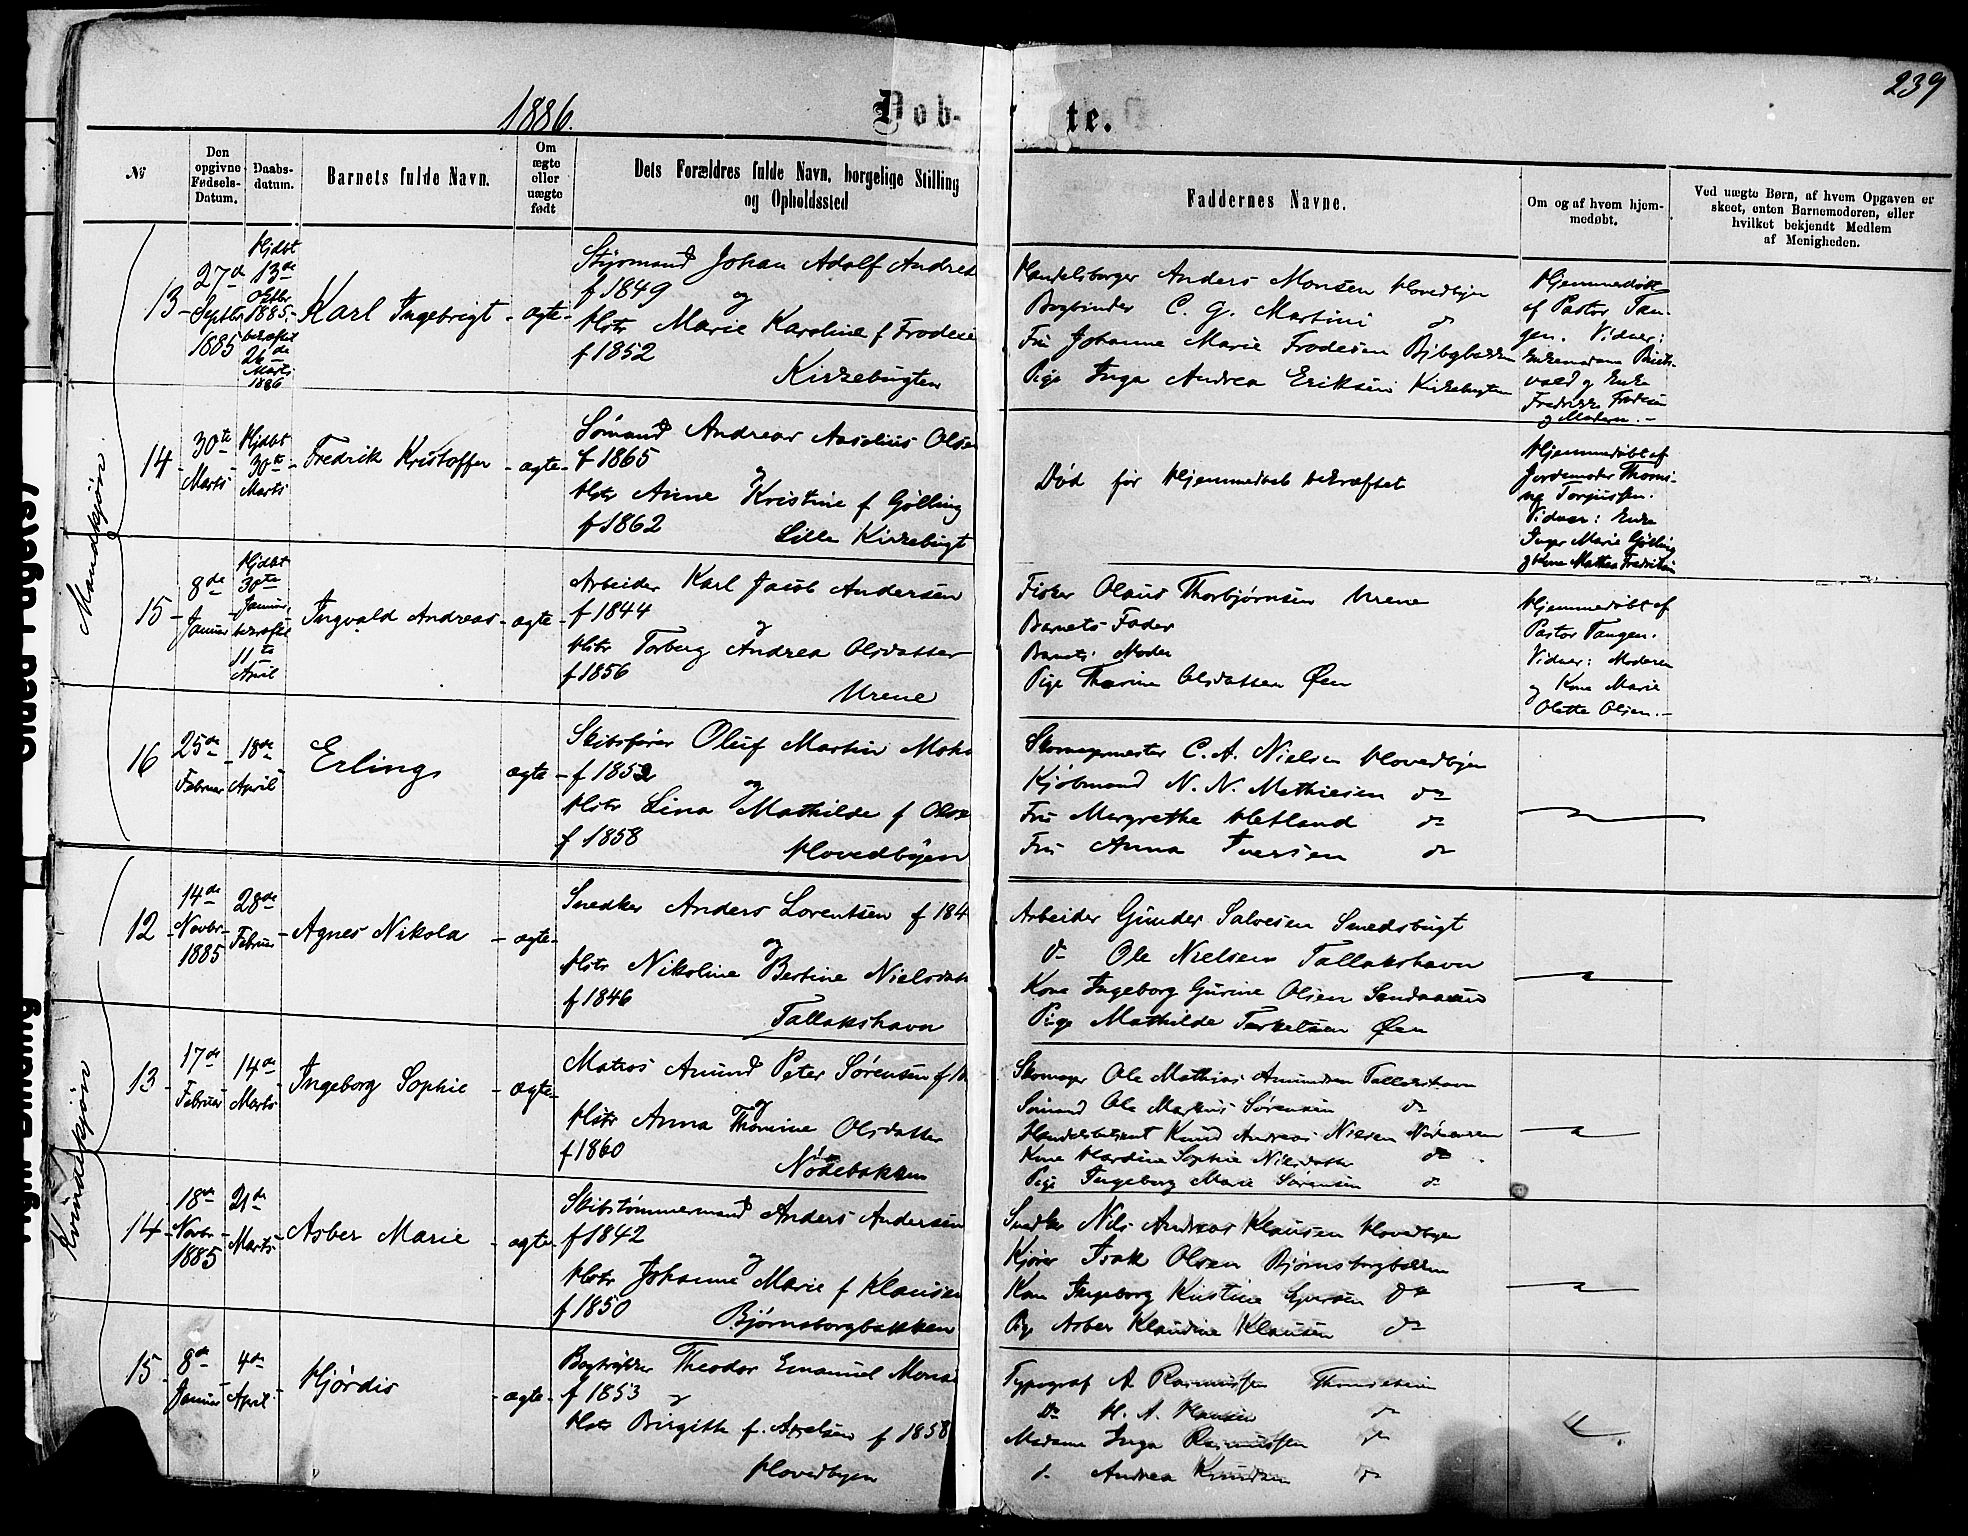 239
1886.
Døb- te.
№
Den opgivne Fødsels-Datum.
Daabs-datum.
Barnets fulde Navn.
Om ægte eller uægte født
Dets Forældres fulde Navn, borgelige Stilling og Opholdssted
Faddernes Navne.
Om og af hvem hjem-medøbt.
Ved uægte Børn, af hvem Opgaven er skeet, enten Barnemoderen, eller hvilket bekjendt Medlem af Menigheden.
Mandskjøn
13
27de Septbr 1885
Hjdbt 13de Octbr 1885 - bekræftet 26de Marts 1886
Karl Ingebrigt
ægte
Styrmand Johan Adolf Andrea
f 1849 og
Hstr Marie Karoline f Frodese
f 1852
Kirkebugten
Handelsborger Anders Monsen Hovedbyen
Bogbinder C. G. Martini do
Fru Johanne Marie Frodesen
Pige Inga Andrea Eriksen Kirkebugten
Hjemmedøbt
af Pastor Tan-
gen. Vidner:
Fredrikke Frodesen
og Moderen. -
14
30te Marts
Hjdbt 30te Marts
Fredrik Kristoffer
ægte
Sømand Andreas Aasolius Olse
f 1865 og
Hstr Anne Kristine f Gjølling
f 1862
Lille Kirkebugt
Død før Hjemmedaab bekræftet
Hjemmedøbt af
Jordemoder Thomi-
ne Torjussen.
Vidner: Enke
Inger Marie Gjølling
og Kone Mathea Fredriksen
15
8de Januar
Hjdbt 30te Januar, bekræftet 11te April
Ingvald Andreas
ægte
Arbeider Karl Jacob Andersen
f 1844 og
Hstr Torborg Andrea Olsdatter
f 1856
Urene
Fisker Olaus Thorbjørnsen Urene
Barnets Fader
Barnets Moder
Pige Tharine Olsdatter Øen
Hjemmedøbt af
Pastor Tangen.
Vidner: Moderen
og Kone Marie
Olette Olsen. -
16
25de Februar
18de April
Erling
ægte
Skibsfører Oluf Martin Mohr
f 1852 og
Hstr Lina Mathilde f Olse
f 1858
Hovedbyen
Skomagermester C. A. Nielsen Hovedbyen
Kjøbmand N. N. Mathiesen do
Fru Margrethe Hetland do
Fru Anna Iversen do
Kvindekjøn
12
14de Novbr 1885
28de Februar
Agnes Nikola
ægte
Snedker Anders Lorentsen f 184
og
Hstr Nikoline Bertine Nielsdatt
f 1846
Tallakshavn
Arbeider Gunder Salvesen Smedsbugt
do Ole Nielsen Tallakshavn
Kone Ingeborg Gurine Olsen
Pige Mathilde Terkelsen Øen
13
17de Februar
14de Marts
Ingeborg Sophie
ægte
Matros Amund Peter Sørensen f 18
og
Hstr Anna Thomine Olsdatter
f 1860
Nødebakken
Skomager Ole Mathias Amundsen Tallakshavn
Sømand Ole Markus Sørensen do
Handelsbetjent Knud Andreas Nielsen
Kone Hardine Sophie Nilsdatter do
Pige Ingeborg Marie Sørensen do
14
18de Novbr 1885
21de Marts
Asber Marie
ægte
Skibstømmermand Anders Andersen
f 1842 og
Hstr Johanne Marie f Klausen
f 1850
Bjørnsborgbakken
Snedker Nils Andreas Klausen Hovedbyen
Kjører Isak Olsen Bjørnsborgbakken
Kone Ingeborg Kristine Syversen do
Pige Asber Klaudine Klausen do
15
8de Januar
4de April
Hjørdis
ægte
Bogtrykker Theodor Emanuel Mons
f 1853 og
Hstr Birgitte f. Axelsen f 1858
Hovedbyen
Typograf A Rasmussen
Do H. A. Hansen do
Madame Inga Rasmussen do
d. Andrea Knudsen do